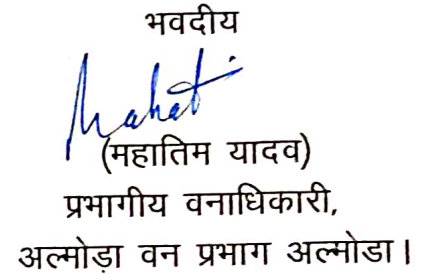 भवदीय
Mahati
(महातिम यादव)
प्रभागीय वनाधिकारी,
अल्मोड़ा वन प्रभाग अल्मोडा।